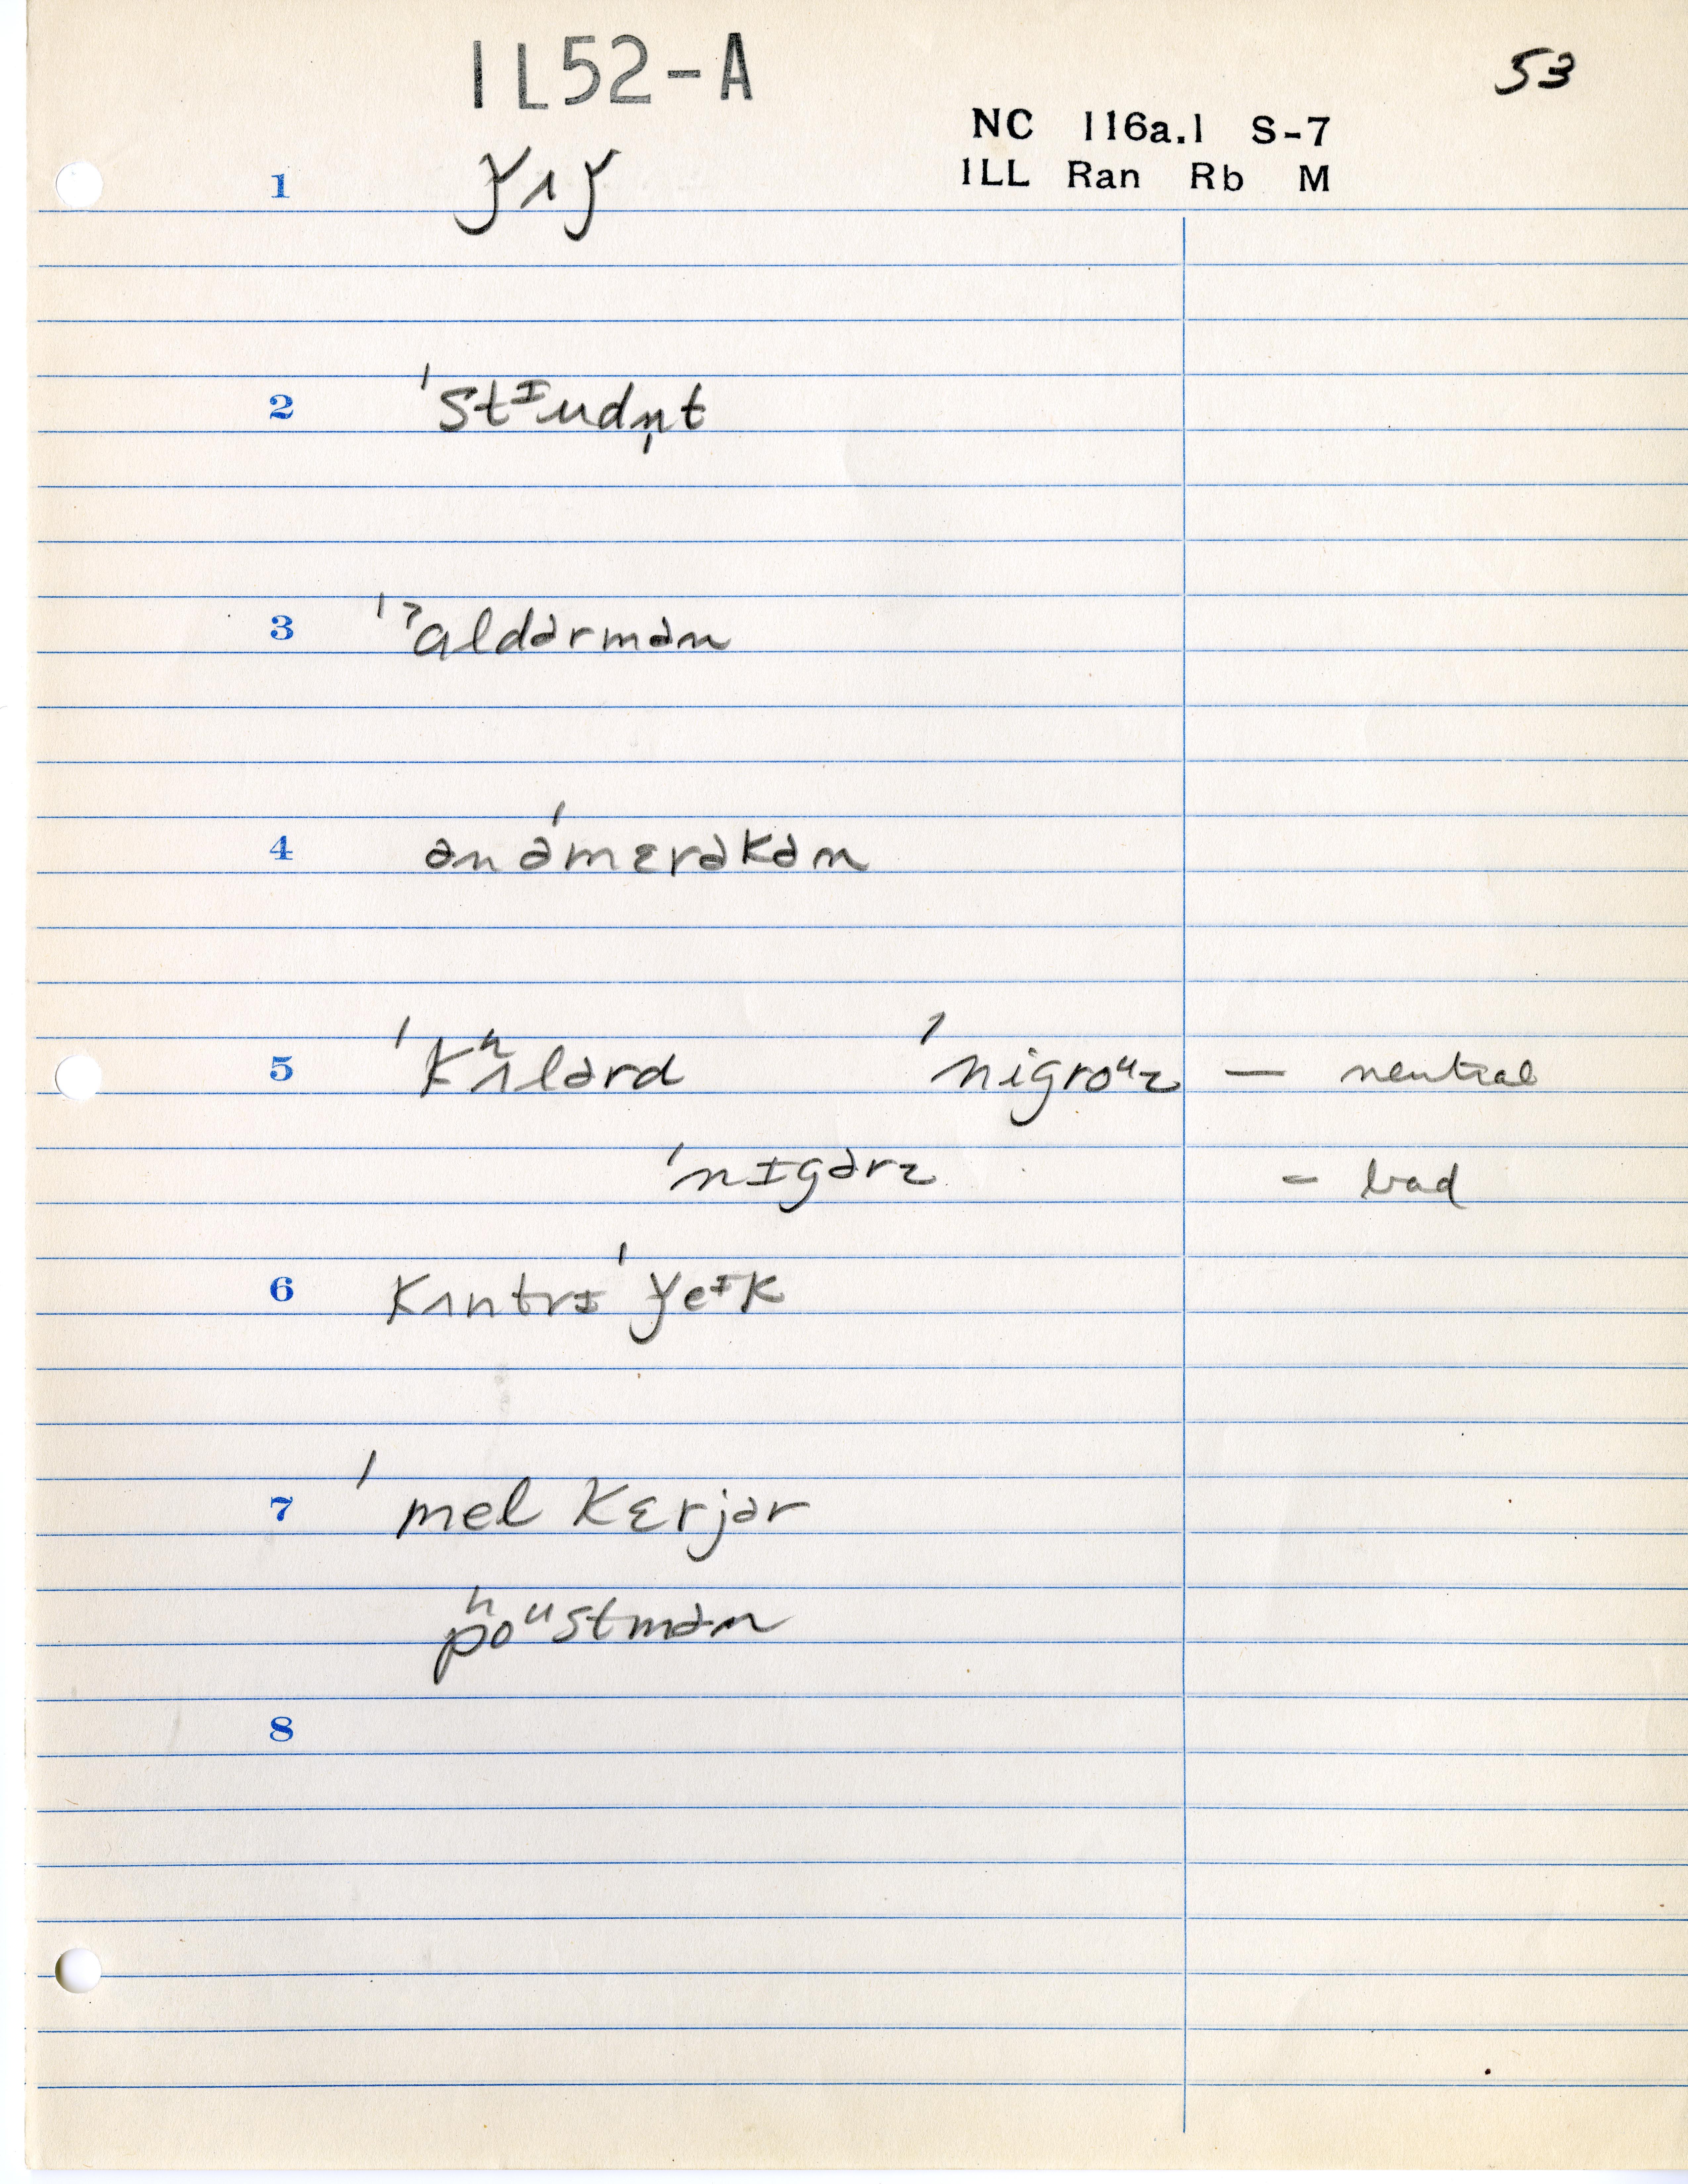 1L52-A
53
NC 116a.1 S-7
ILL Ran Rb M
1 ǰʌǰ
2 ˈstᶦudn̩t
3 ˈˀɑldərmən
4 ənəˈmɛrəkən
5 ˈkʰʌlərd ˈnigroᵘz — neutral
ˈnɪgərz - bad
6 kʌntrɪ ˈǰeᶦk
7 ˈmel kɛrjər
pʰoᵘstmən
8